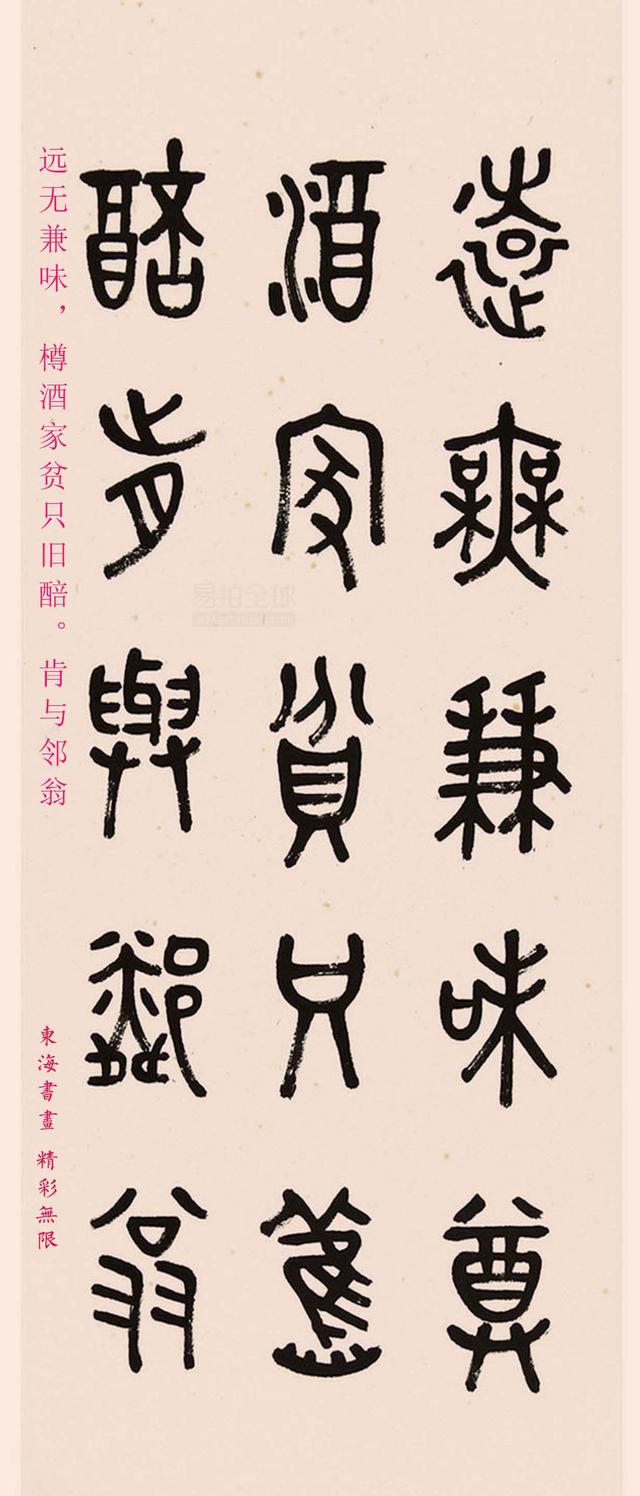 遠無兼味尊
酒家貧只舊
醅肯與鄰翁
远无兼味，樽酒家贫只旧醅。肯与邻翁
東海書畫 精彩無限
易拍全球